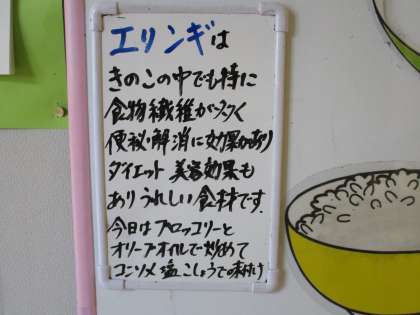 エリンギは
きのこの中でも特に
食物繊維が多く
便秘解消に効果があり
ダイエット 美容効果も
ありうれしい食材です.
今日はブロッコリーと
オリーブオイルで炒めて
コンソメ 塩 こしょうでの味付け